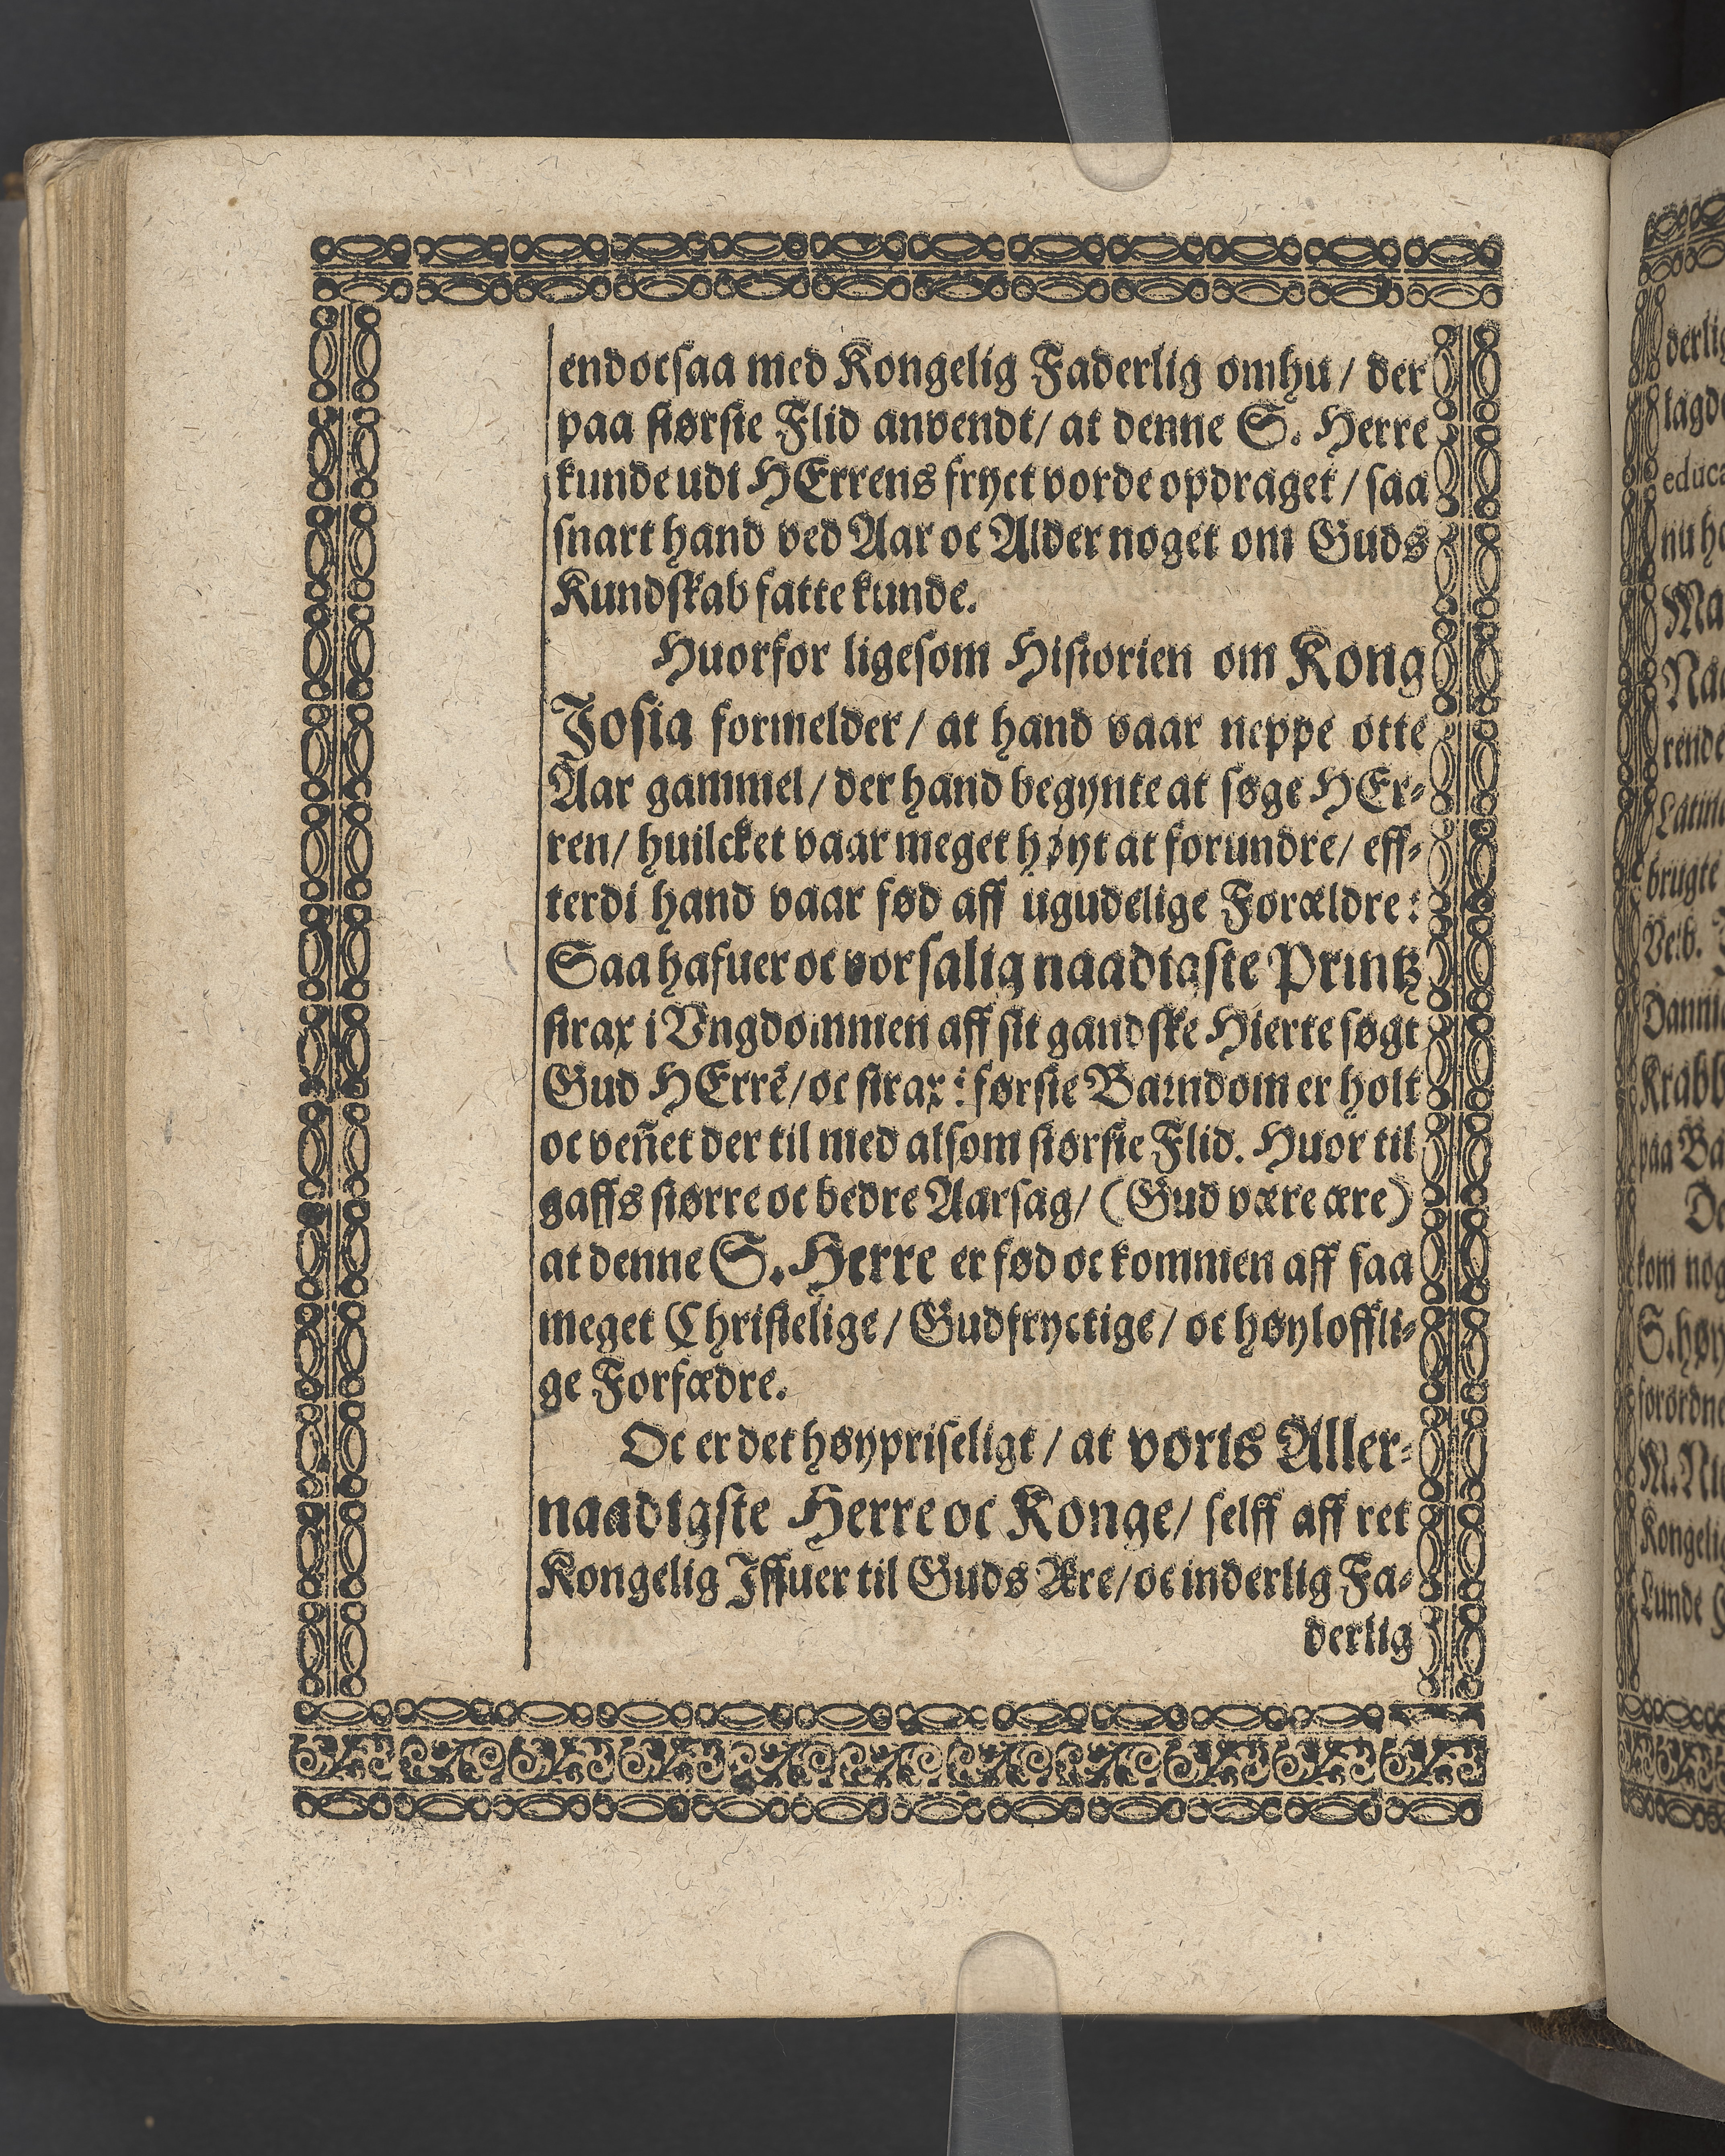 endocsaa med Kongelig Faderlig omhu / der
paa største Flid anvendt / at denne S. Herre
kunde udi HErrens fryct vorde opdraget / saa
snart hand ved Aar oc Alder noget om Guds
Kundskab fatte kunde.
Huorfor ligesom Historien om Kong
Josia formelder / at hand vaar neppe otte
Aar gammel / der hand begynte at søge HEr-
ren / huilcket vaar meget høyt at forundre / eff-
terdi hand vaar fød aff ugudelige Forældre:
Saa hafuer oc vor salig naadigste Printz
strax i Vngdommen aff sit gandske Hierte søgt
Gud HErrē / oc strax i første Barndom er holt
oc veñet der til med alsom største Flid. Huor til
gaffs større oc bedre Aarsag / (Gud være ære)
at denne S. Herre er fød oc kommen aff saa
meget Christelige / Gudfryctige / oc høyloffli-
ge Forfædre.
Oc er det høypriseligt / at vorts Aller-
naadigste Herre oc Konge / selff aff ret
Kongelig Jffuer til Guds Ære / oc inderlig Fa-
derlig
derlig
tagd
educa
nu h
Ma
Na
rende
Latin
brugte
Veib.
Danni
Krabb
paa Ba
De
kom nog
S. høy
forordne
M. Ni
Kongelig
Lunde